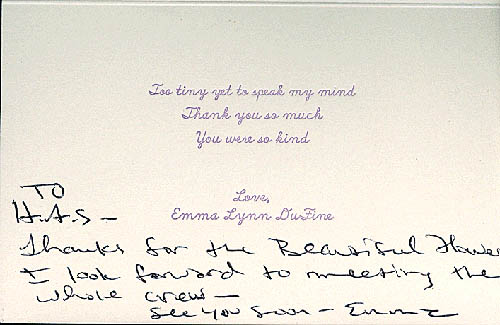 Too tiny yet to speak my mind
Thank you so much
You were so kind
Love,
Emma Lynn DuFine
TO
H.A.S –
Thanks for the Beautiful Flowe
I look forward to meeting the
whole crew –
See you soon – Emma